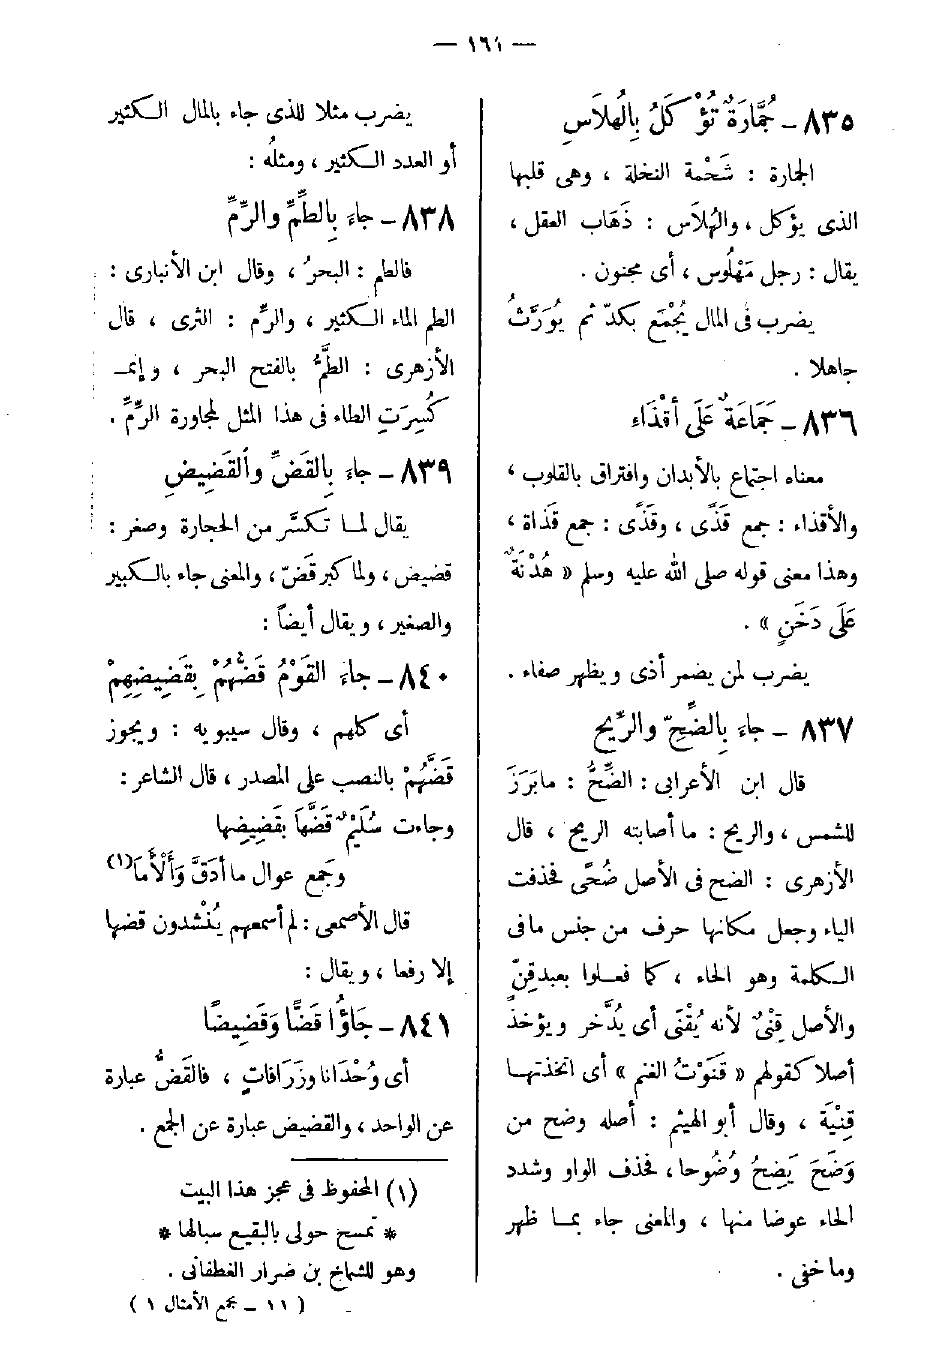 — ١٦١ —
٨٣٥ - جُمَّارَةٌ تُؤْكَلُ بِالْهُلَاسِ
الجمارة : شَحْمة النخلة ، وهى قلبها
الذى يؤكل ، والهُلاَس : ذَهَاب العقل ،
يقال : رجل مَهْلُوس ، أى مجنون .
يضرب فى المال يُجْمَع بكدّ ثم يُورَّثُ
جاهلا .
٨٣٦ - جَمَاعَةٌ عَلَى أقْذَاء
معناه اجتماع بالأبدان وافتراق بالقلوب ،
والأقذاء : جمع قَذًى ، وقَذًى : جمع قَذَاة ،
وهذا معنى قوله صلى الله عليه وسلم « هُدْنَةٌ
عَلَى دَخَنٍ » .
يضرب لمن يضمر أذى ويظهر صفاء .
٨٣٧ - جاءَ بِالضِّحِّ والرِّيحِ
قال ابن الأعرابى : الضِّحُّ : مابَرَزَ
للشمس ، والريح : ما أصابته الريح ، قال
الأزهرى : الضح فى الأصل ضُحًى فحذفت
الياء وجعل مكانها حرف من جنس مافى
الكلمة وهو الحاء ، كما فعلوا بعبدقِنٍّ
والأصل قِنْىٌ لأنه يُقْنَى أى يُدَّخر ويؤخذ
أصلا كقولهم « قَنَوْتُ الغنم » أى اتخذتها
قِنْيَة ، وقال أبو الهيثم : أصله وضح من
وَضَحَ يَضِحُ وُضُوحا ، فحذف الواو وشدد
الحاء عوضا منها ، والمعنى جاء بما ظهر
وما خفى .
يضرب مثلا للذى جاء بالمال الكثير
أو العدد الكثير ، ومثلُه :
٨٣٨ - جاءَ بِالطِّمِّ والرِّمِّ
فالطم : البحرُ ، وقال ابن الأنبارى :
الطم الماء الكثير ، والرِّم : الثرى ، قال
الأزهرى : الطَّمُّ بالفتح البحر ، وإنما
كُسِرَتِ الطاء فى هذا المثل لمجاورة الرِّمِّ .
٨٣٩ - جاءَ بِالقَضِّ وألقَضِيضِ
يقال لما تكسَّر من الحجارة وصغر :
قضيض ، ولما كبر قَضّ ، والمعنى جاء بالكبير
والصغير ، ويقال أيضاً :
٨٤٠ - جاءَ القَوْمُ قَضُّهُمْ بِقَضِيضِهِمْ
أى كلهم ، وقال سيبويه : ويجوز
قَضَّهُمْ بالنصب على المصدر ، قال الشاعر :
وجاءت سُلَيْمٌ قَضَّهَا بقَضِيضِها
وجَمع عوال ما أدَقَّ وَأَلْأَمَا(١)
قال الأصمعى : لم أسمعهم يُنْشدون قضها
إلا رفعا ، ويقال :
٨٤١ - جَاؤُا قَضًّا وَقَضِيضًا
أى وُحْدَانا وزَرَافاتٍ ، فالقَضُّ عبارة
عن الواحد ، والقضيض عبارة عن الجمع .
(١) المحفوظ فى عجز هذا البيت
* تمسح حولى بالبقيع سبالها *
وهو للشماخ بن ضرار الغطفانى .
( ١١ - مجمع الأمثال ١ )